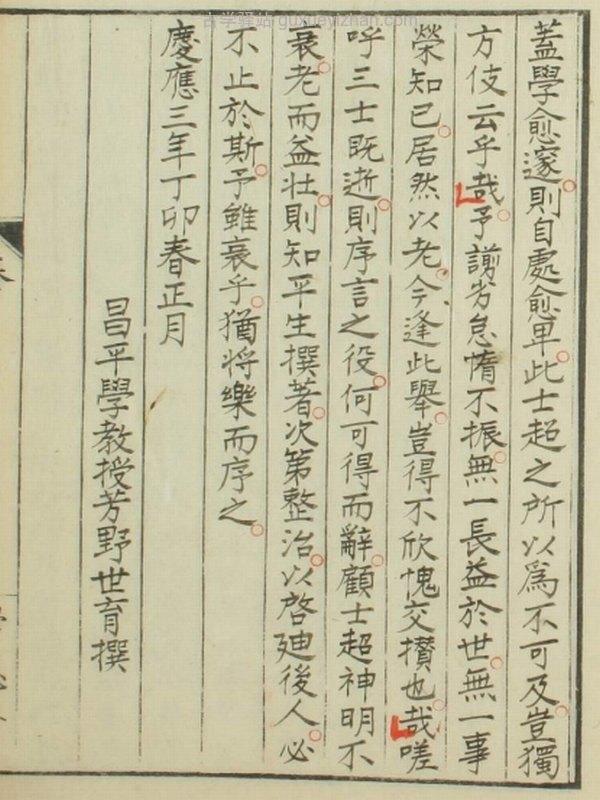 古学驿站 guxueyizhan.com
蓋學愈邃則自處愈卑此士超之所以爲不可及豈獨
方伎云乎哉予謭劣怠惰不振無一長益於世無一事
榮知已居然以老今逢此舉豈得不欣愧交攅也哉嗟
呼三士既逝則序言之役何可得而辭顧士超神明不
衰老而益壯則知平生撰著次第整治以啓廸後人必
不止於斯予雖衰乎猶將樂而序之
慶應三年丁卯春正月
昌平學教授芳野世育撰